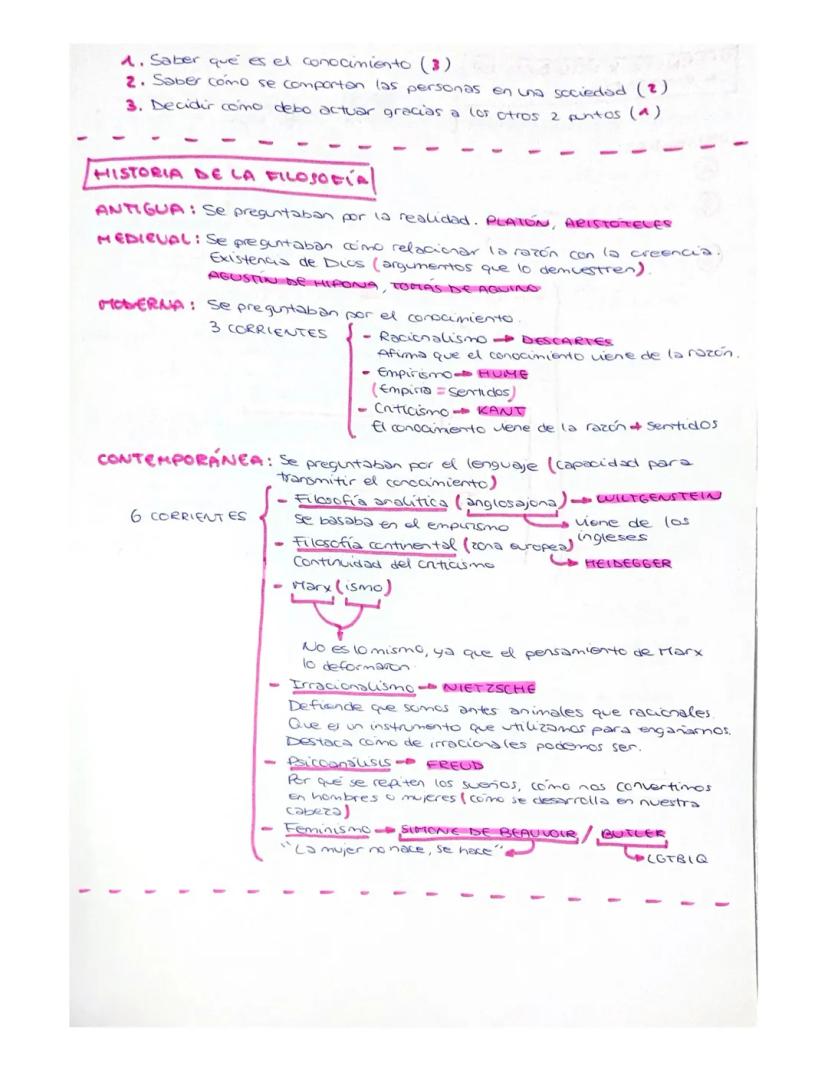 1. Saber qué es el conocimiento (3)
2. Saber cómo se comportan las personas en una sociedad (2)
3. Decidir cómo debo actuar gracias a los otros 2 puntos (1)
HISTORIA DE LA FILOSOFÍA
ANTIGUA: Se preguntaban por la realidad. PLATÓN, ARISTÓTELES
MEDIEVAL: Se preguntaban cómo relacionar la razón con la creencia.
Existencia de Dios (argumentos que lo demuestren).
AGUSTÍN DE HIPONA, TOMÁS DE AQUINO
MODERNA: Se preguntaban por el conocimiento.
3 CORRIENTES
- Racionalismo → DESCARTES
Afirma que el conocimiento viene de la razón.
- Empirismo → HUME
(Empiria = Sentidos)
- Criticismo → KANT
El conocimiento viene de la razón + sentidos
CONTEMPORÁNEA: Se preguntaban por el lenguaje (capacidad para
transmitir el conocimiento)
6 CORRIENTES
- Filosofía analítica (anglosajona) → WILTGENSTEIN
Se basaba en el empirismo → viene de los
ingleses
- Filosofía continental (zona europea)
Continuidad del criticismo → HEIDEGGER
- Marx (ismo)
No es lo mismo, ya que el pensamiento de Marx
lo deformaron
- Irracionalismo → NIETZSCHE
Defiende que somos antes animales que racionales.
Que es un instrumento que utilizamos para engañarnos.
Destaca cómo de irracionales podemos ser.
- Psicoanálisis → FREUD
Por qué se repiten los sueños, cómo nos convertimos
en hombres o mujeres (cómo se desarrolla en nuestra
cabeza)
- Feminismo → SIMONE DE BEAUVOIR / BUTLER
"La mujer no nace, se hace" → LGTBIQ